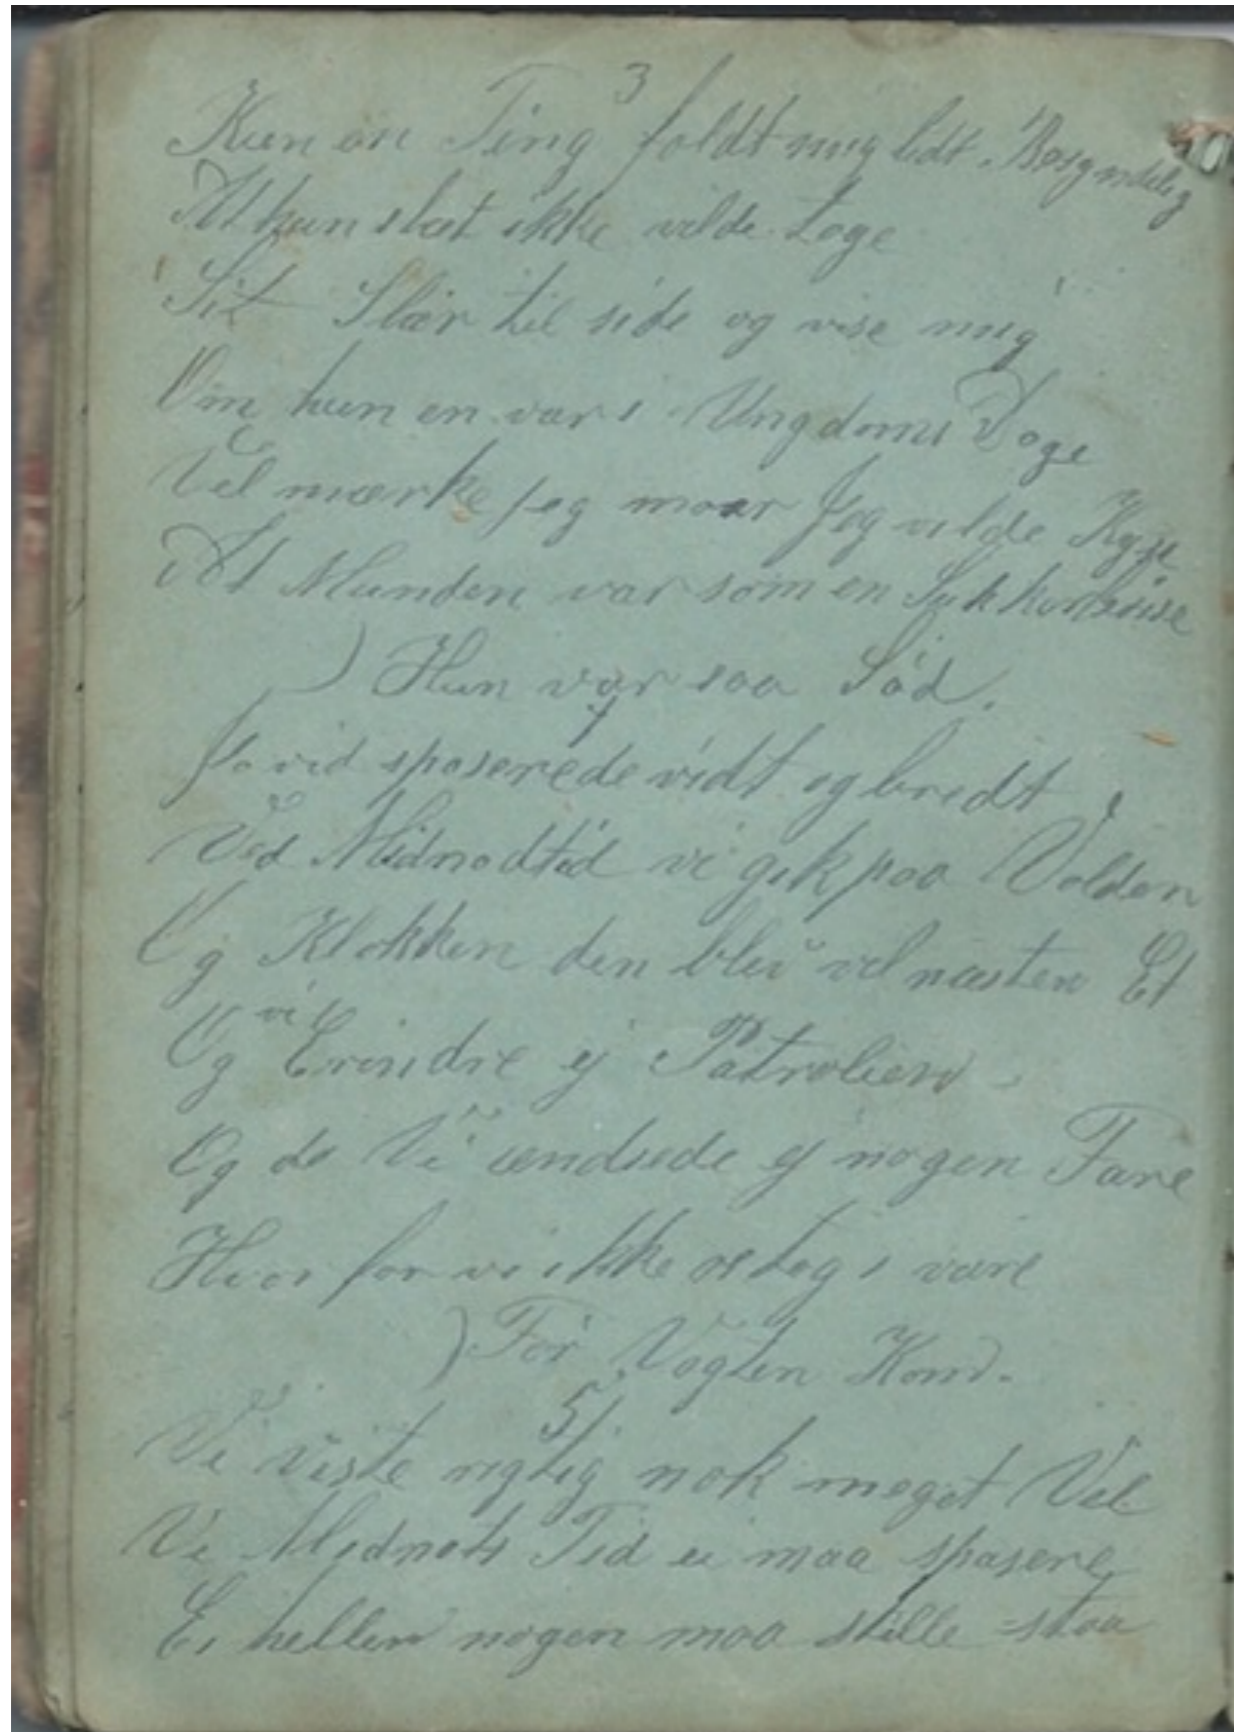 3
Kun en Ting faldt mig lidt Besynderlig
At hun slæt ikke vilde tage
Sit Slør til side og vise mig
Om hun en var i Ungdoms Dage
Vel mærke jeg maar Jeg vilde Kysse
At Munden var som en Sukkerbøsse
) Hun var saa Söd.
4
Ja vid spaserede vidt og bredt
Ved Midnadtid vi gik paa Volden
Og Klokken den blev vel næsten Et
Og vi Erindre ej Patrolien
Og de Vi ændsede ej nogen Fare
Hvor for vi ikke os tog i vare
) För Vagten Kom.
5
Vi viste rigtig nok meget Vel
Ve Midnats Tid ei maa spasere
Ei heller nogen maa stille staa